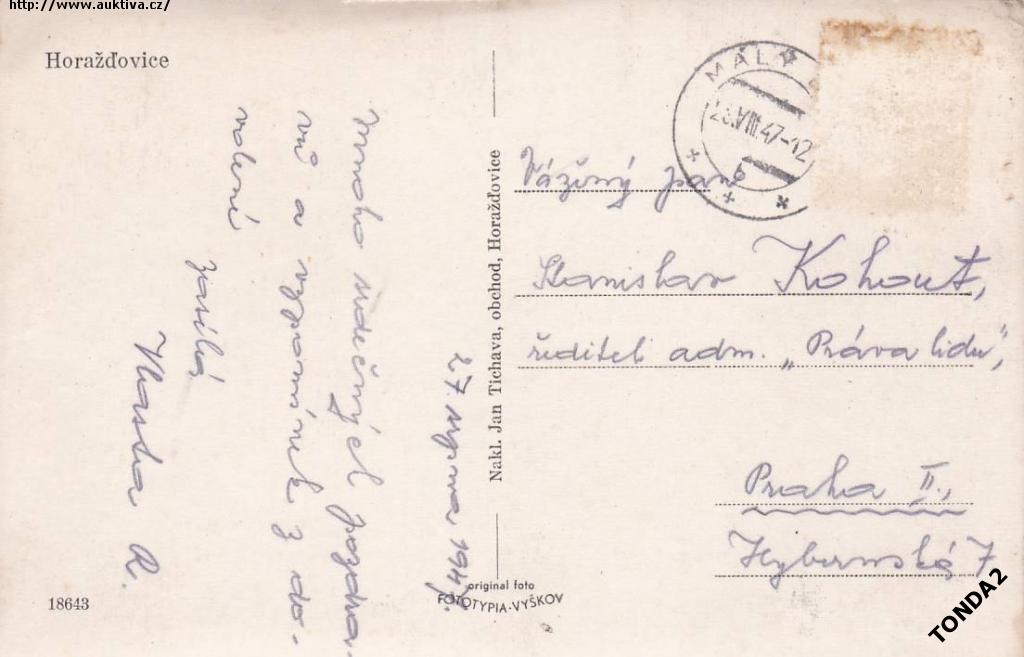 http://www.auktiva.cz/
Horažďovice
27. srpna 1947.
Mnoho srdečných pozdra-
vů a vzpomínek z do-
volené
zasílá
Vlasta R.
18643
Nakl. Jan Tichava, obchod, Horažďovice
original foto
FOTOTYPIA-VYŠKOV
MALÝ
28.VIII.47-12
b
Vážený pan
Stanislav Kohout,
ředitel adm. „Práva lidu",
Praha II.,
Hybernská 7
TONDA2